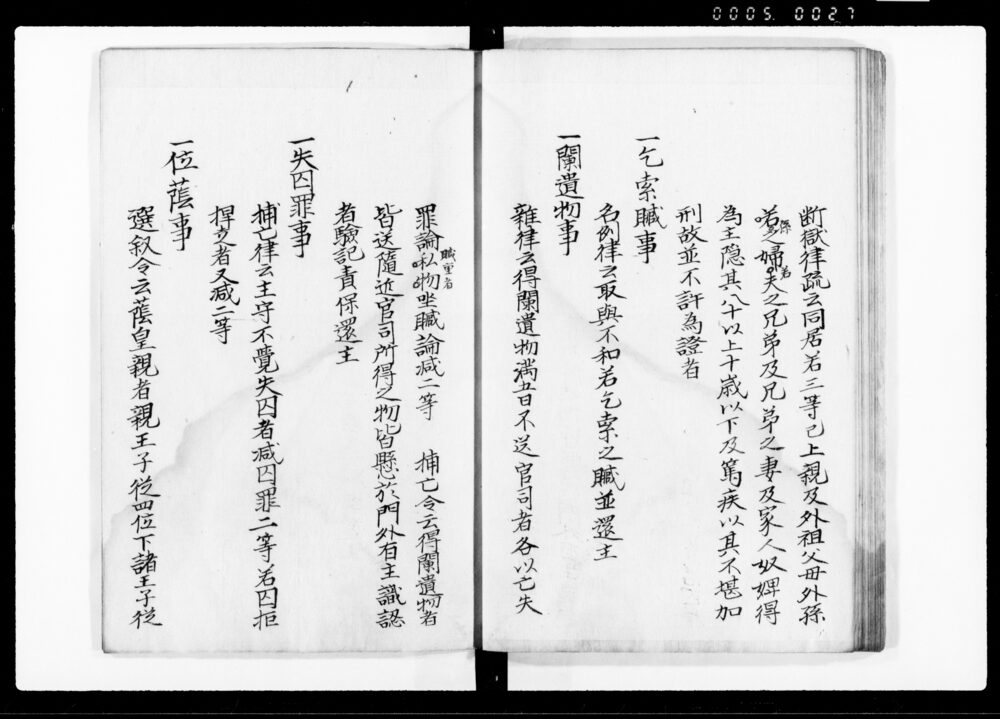 0005.0027
断獄律疏云同居若三等已上親及外祖父母外孫
若孫婦夫之兄弟及兄弟之妻及家人奴婢得
為主隠其八十以上十歳以下及篤疾以其不堪加
刑故並不許為證者
一乞索贓事
名例律云取與不和若乞索之贓並還主
一闌遺物事
雜律云得闌遺物満五日不送官司者各以亡失
罪論贓重者私物坐贓論减二等 捕亡令云得闌遺物者
皆送隨近官司所得之物皆懸於門外有主識認
者驗記責保還主
一失囚罪事
捕亡律云主守不覺失囚者减囚罪二等若囚拒
捍走者又减二等
一位蔭事
選叙令云蔭皇親者親王子従四位下諸王子従